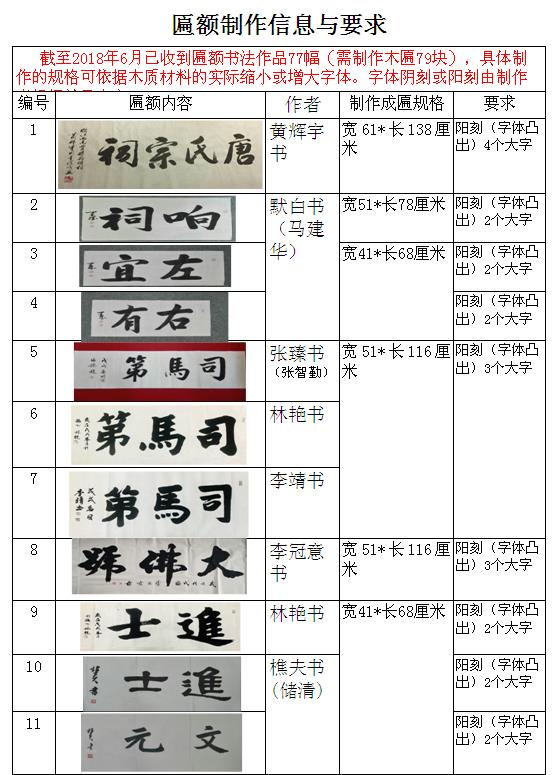 匾额制作信息与要求
截至2018年6月已收到匾额书法作品77幅（需制作木匾79块），具体制
作的规格可依据木质材料的实际缩小或增大字体。字体阴刻或阳刻由制作
编号 匾额内容 作者 制作成匾规格 要求
1
唐氏宗祠
黄辉宇
书
宽 61* 长 138 厘
米
阳刻（字体凸
出）4个大字
2
响祠
默白书
（马建
华）
宽51*长78厘米
阳刻（字体凸
出）2个大字
3
左宜
宽41*长68厘米
阳刻（字体凸
出）2个大字
4
右有
阳刻（字体凸
出）2个大字
5
司馬第
张臻书
（张智勤）
宽 51* 长 116 厘
米
阳刻（字体凸
出）3个大字
6
司馬第
林艳书
7
司馬第
李靖书
8
大佛號
李冠意
书
宽 51* 长 116 厘
米
阳刻（字体凸
出）3个大字
9
進士
林艳书
宽41*长68厘米
阳刻（字体凸
出）2个大字
10
進士
樵夫书
（储清）
阳刻（字体凸
出）2个大字
11
文元
阳刻（字体凸
出）2个大字